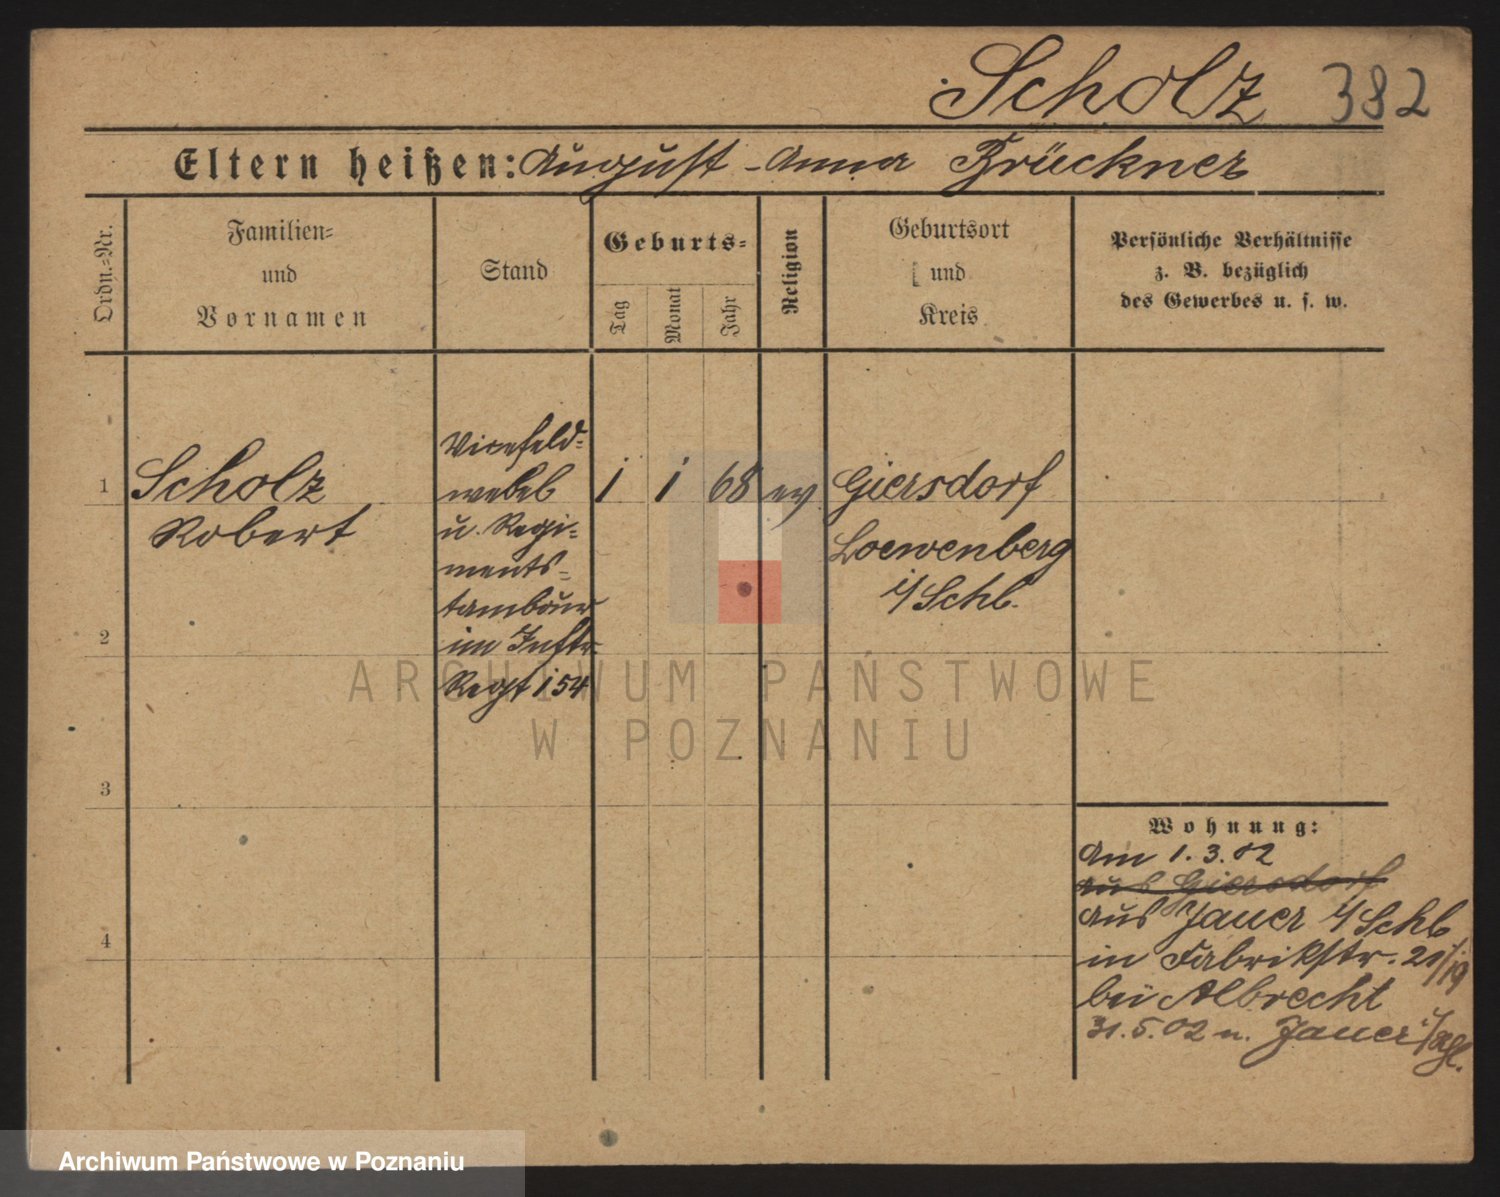 Scholz 382
Eltern heißen: August - Anna Brückner
Ordn.=Nr.
Familien=
und
Vornamen
Stand
Geburts=
Tag
Monat
Jahr
Religion
Geburtsort
und
Kreis
Persönliche Verhältnisse
z. B. bezüglich
des Gewerbes u. s. w.
1
Scholz
Robert
Vicefeld-
webel
u. Regi-
ments-
tambour
im Inftr.
Regt 154
1 1 68 ev
Giersdorf
Loewenberg
i/Schl.
2
3
4
Wohnung:
Am 1.3.02
aus Giersdorf
aus Jauer i/Schl
in Fabrikstr. 21/19
bei Albrecht
31.5.02 n. Jauer i/Schl.
ARCHIWUM PAŃSTWOWE
W POZNANIU
Archiwum Państwowe w Poznaniu